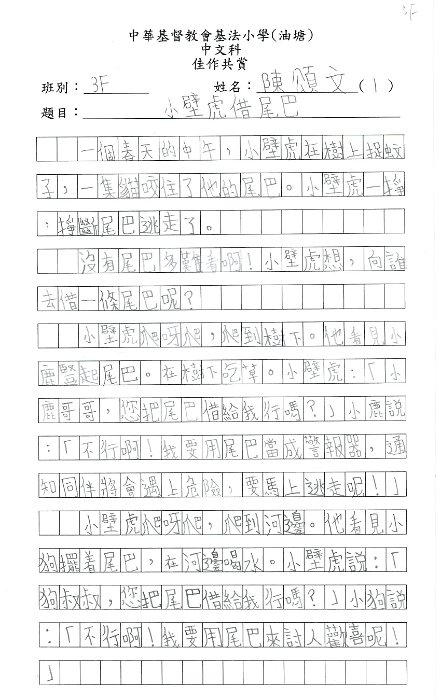 3F
中華基督教會基法小學(油塘)
中文科
佳作共賞
班別：3F 姓名：陳頌文(1)
題目：小壁虎借尾巴
一個春天的中午，小壁虎在樹上捉蚊
子，一隻貓咬住了他的尾巴。小壁虎一掙
，掙斷尾巴逃走了。
沒有尾巴多難看啊！小壁虎想，向誰
去借一條尾巴呢？
小壁虎爬呀爬，爬到樹下。他看見小
鹿豎起尾巴。在樹下吃草。小壁虎：「小
鹿哥哥，您把尾巴借給我行嗎？」小鹿說
：「不行啊！我要用尾巴當成警報器，通
知同伴將會遇上危險，要馬上逃走呢！」
小壁虎爬呀爬，爬到河邊。他看見小
狗擺着尾巴，在河邊喝水。小壁虎說：「
狗叔叔，您把尾巴借給我行嗎？」小狗說
：「不行啊！我要用尾巴來討人歡喜呢！
」